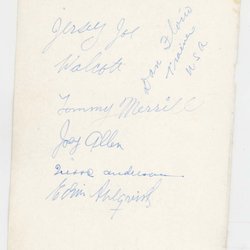 Jersey Joe
Walcott
Dan Florio
trainer
USA
Tommy Merrill
Joey Allen
anderson
Edvin Ahlqvist